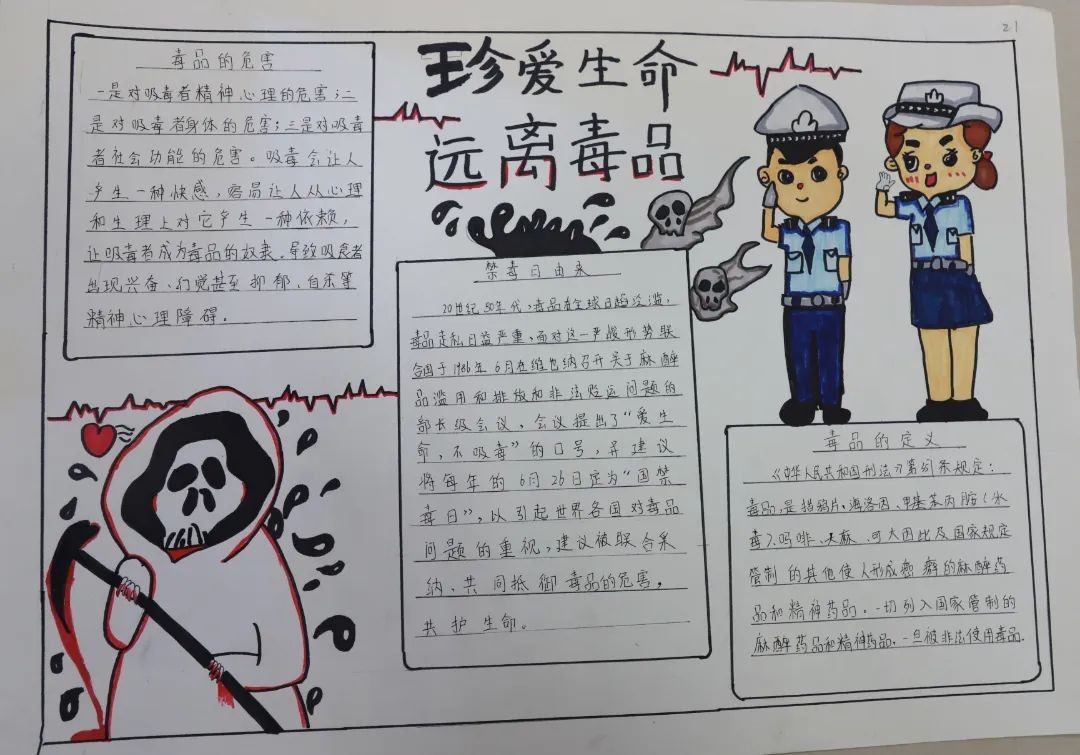 21
珍爱生命
远离毒品
毒品的危害
一是对吸毒者精神心理的危害;二
是对吸毒者身体的危害;三是对吸毒
者社会功能的危害。吸毒会让人
产生一种快感,容易让人从心理
和生理上对它产生一种依赖,
让吸毒者成为毒品的奴隶。导致吸毒者
出现兴奋、幻觉甚至抑郁、自杀等
精神心理障碍。
禁毒日由来
20世纪80年代,毒品在全球日趋泛滥,
毒品走私日益严重,面对这一严峻形势联
合国于1986年6月在维也纳召开关于麻醉
品滥用和排放和非法贩运问题的
部长级会议,会议提出了“爱生
命,不吸毒”的口号,并建议
将每年的6月26日定为“国禁
毒日”,以引起世界各国对毒品
问题的重视,建议被联合采
纳、共同抵御毒品的危害,
共护生命。
毒品的定义
《中华人民共和国刑法》第条规定:
毒品,是指鸦片、海洛因、甲基苯丙胺(冰
毒)、吗啡、大麻、可大因比及国家规定
管制的其他使人形成瘾癖的麻醉药
品和精神药品。一切列入国家管制的
麻醉药品和精神药品,一旦被非法使用毒品.